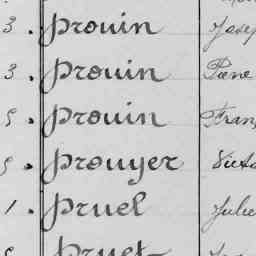 3. Prouin Josep
3. Prouin Pierre
5. Prouin Franç
5. Prouyer Victo
1. Pruel Julie
Pruet